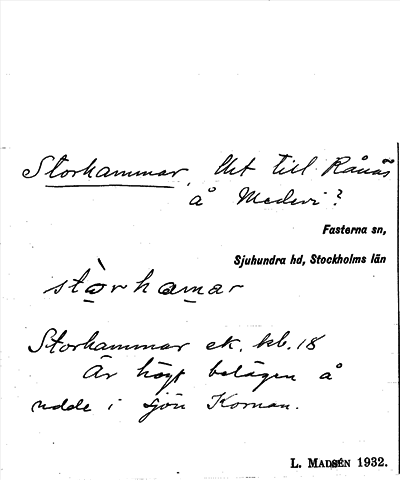 Storhammar, Ut till Rånäs
å Medevi?
Fasterna sn,
Sjuhundra hd, Stockholms län
stò̱rha̱mar
Storhammar ek. kb. 18
Är högt belägen å
udde i sjön Kornan.
L. MADSÉN 1932.